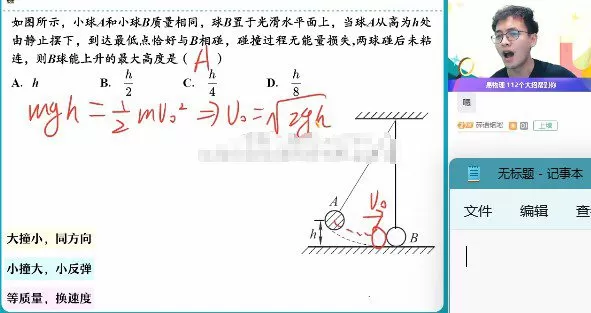 如图所示，小球A和小球B质量相同，球B置于光滑水平面上，当球A从高为h处
由静止摆下，到达最低点恰好与B相碰，碰撞过程无能量损失,两球碰后未粘
连，则B球能上升的最大高度是（ A ）
A. h B. h/2 C. h/4 D. h/8
mgh = 1/2 mv₀² ⇒ v₀ = √2gh
A
v₀
h
B
大撞小，同方向
小撞大，小反弹
等质量，换速度
嗯
上墙
无标题 - 记事本
文件 编辑 查